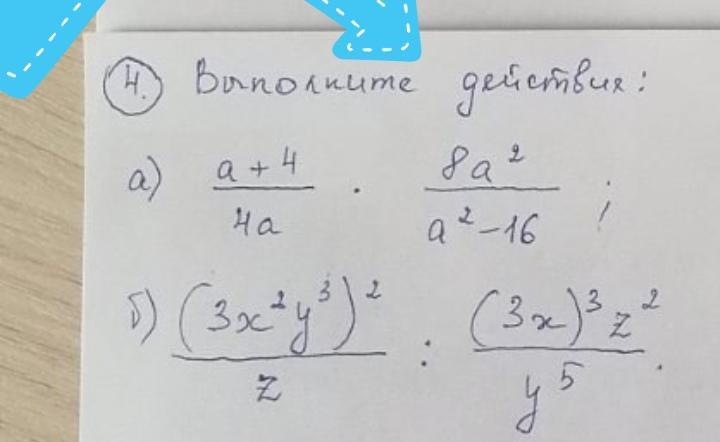 4. Выполните действия:
а) (a + 4)/(4a) · (8a²)/(a² – 16) ;
б) (3x²y³)²/z : ((3x)³z²)/y⁵ .